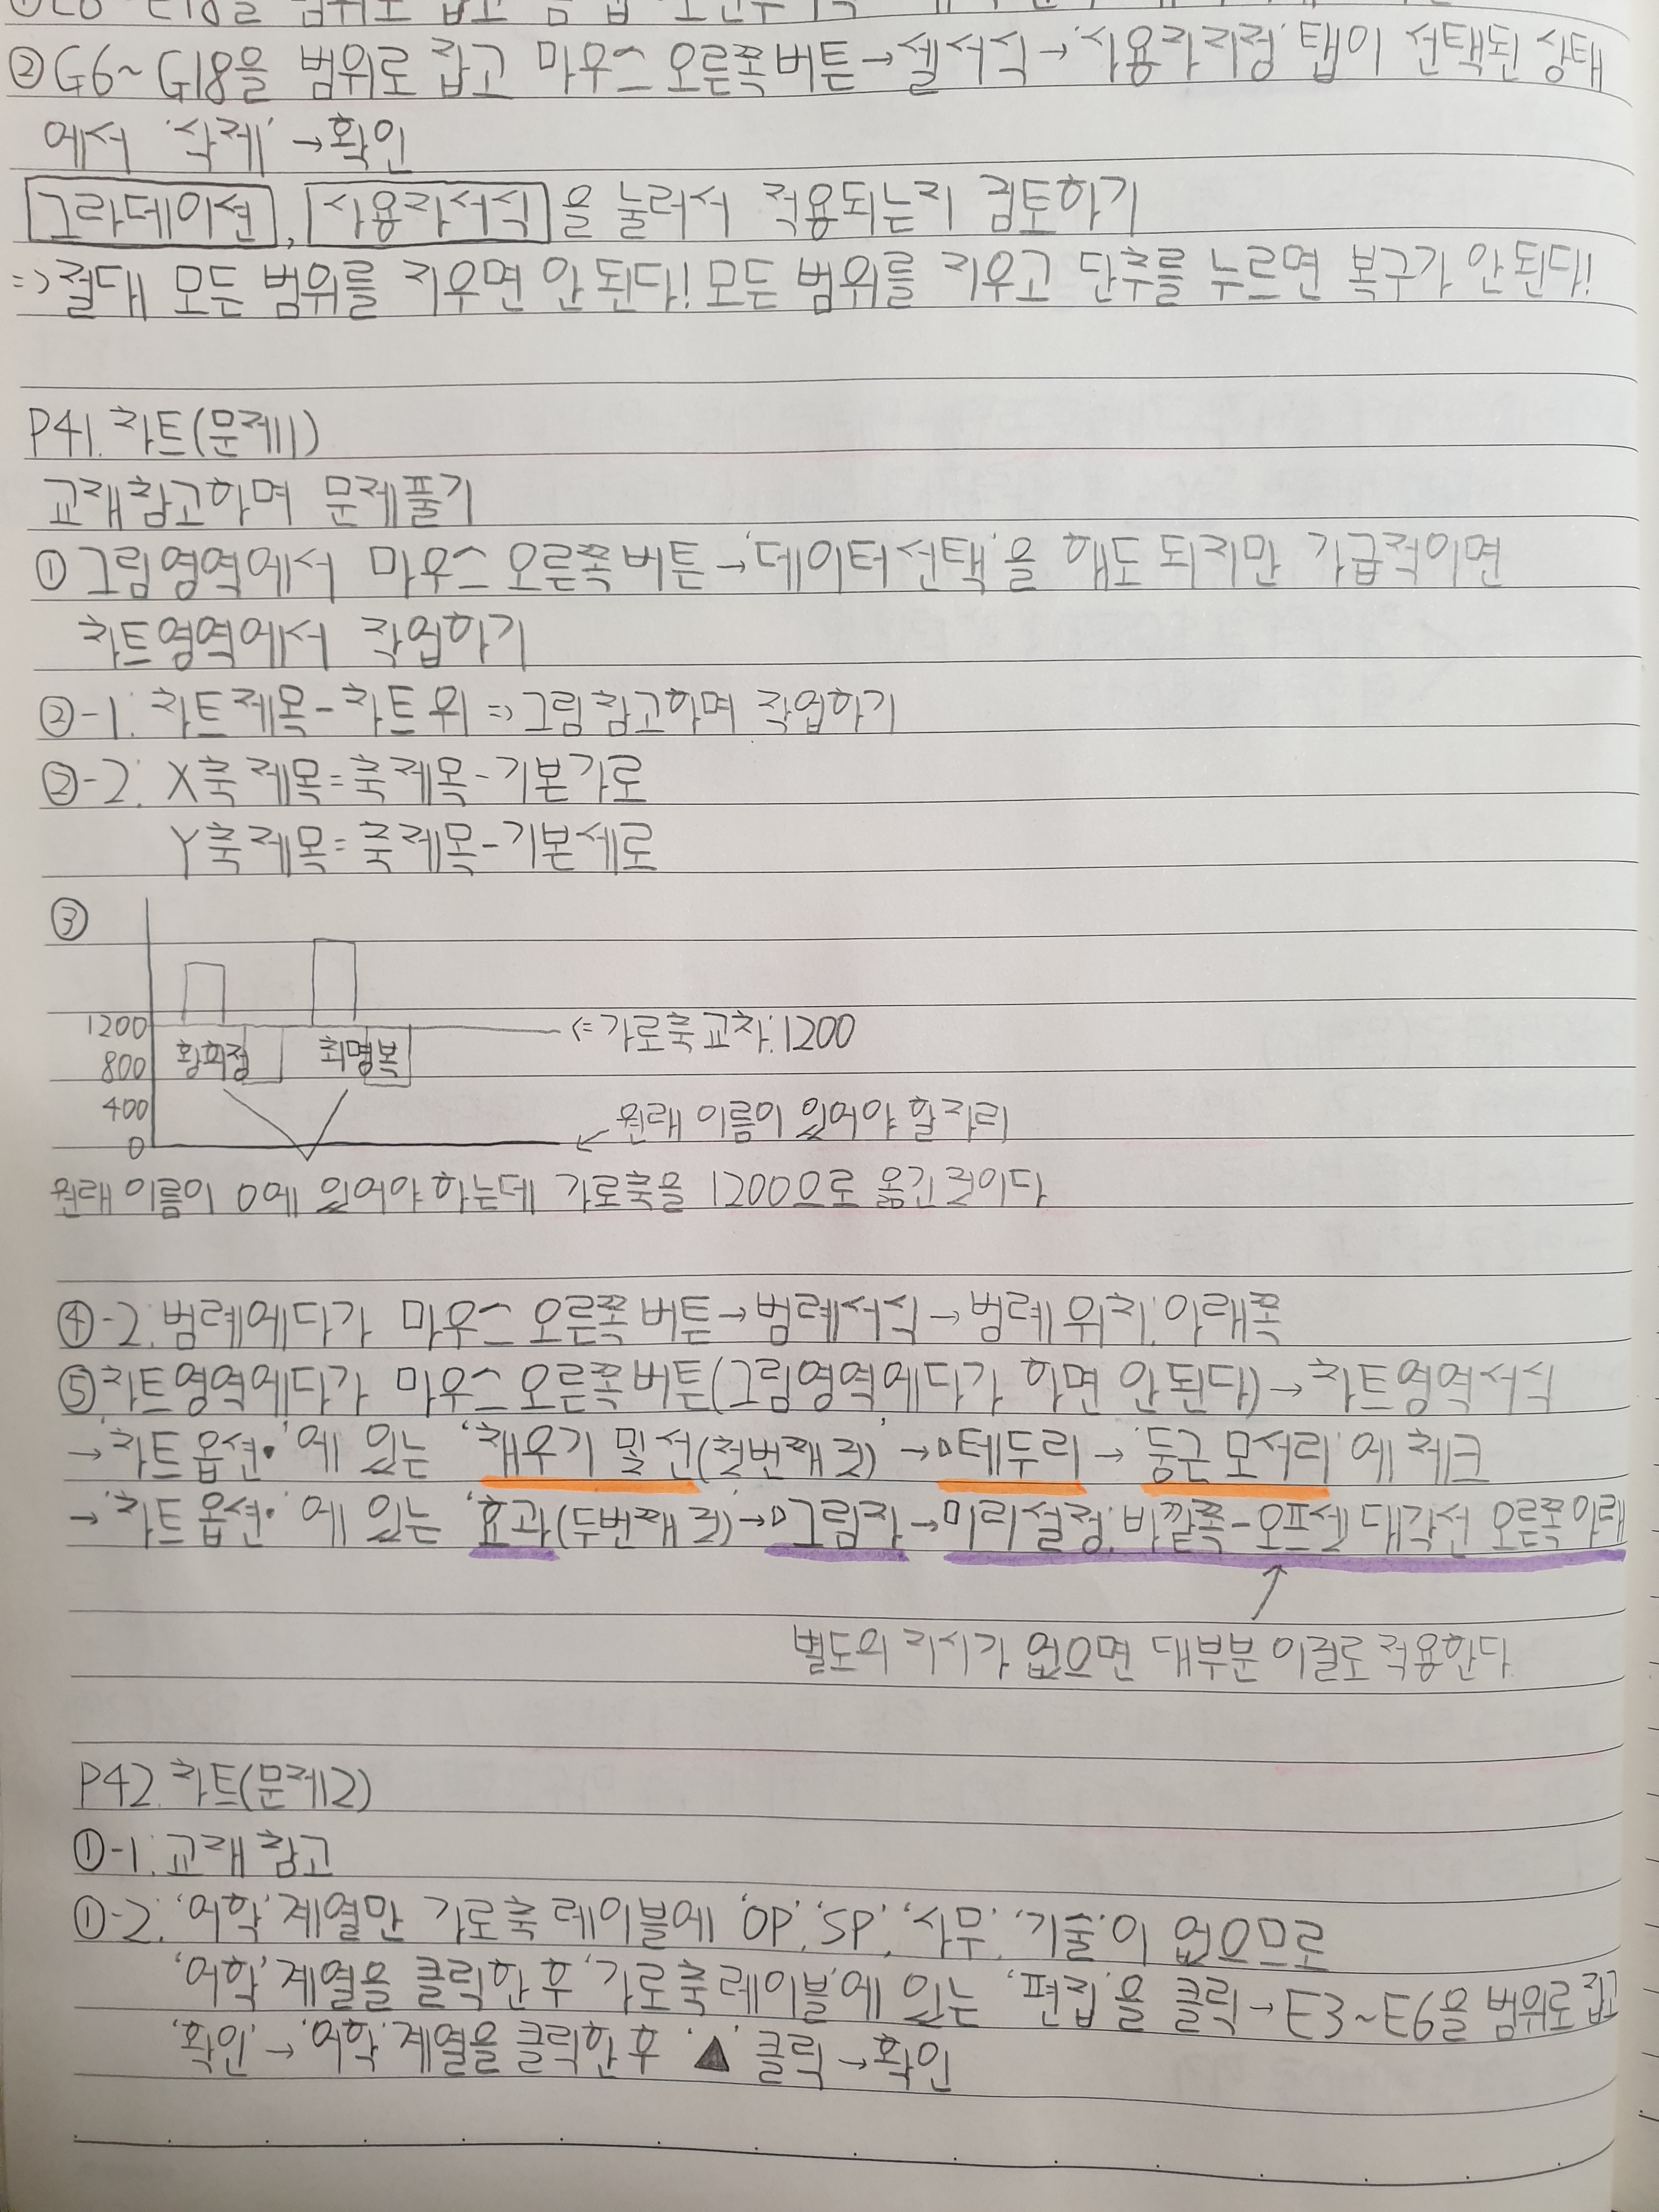 ②G6~G18을 범위로 잡고 마우스 오른쪽버튼→셀서식→'사용자지정'탭이 선택된 상태
에서 '삭제' →확인
그라데이션, 사용자서식 을 눌러서 적용되는지 검토하기
=>절대 모든 범위를 지우면 안 된다! 모든 범위를 지우고 단추를 누르면 복구가 안된다!
P41. 차트(문제1)
교재참고하며 문제풀기
①그림영역에서 마우스 오른쪽버튼→'데이터선택'을 해도 되지만 가급적이면
차트영역에서 작업하기
②-1. 차트제목-차트위 => 그림참고하며 작업하기
②-2. X축 제목=축제목-기본가로
Y축제목=축제목-기본세로
③
1200 <=가로축교차:1200
800 황희정 최명복
400 원래 이름이 있어야 할자리
0
원래 이름이 0에 있어야 하는데 가로축을 1200으로 옮긴것이다
④-2. 범례에다가 마우스 오른쪽 버튼→범례서식→범례 위치:아래쪽
⑤차트영역에다가 마우스 오른쪽버튼(그림영역에다가 하면 안된다)→차트영역서식
→'차트옵션▾'에 있는 '채우기 및 선(첫번째것)'→▷테두리→'둥근 모서리'에 체크
→'차트옵션▾'에 있는 '효과(두번째것)'→▷그림자→미리설정:바깥쪽-오프셋 대각선 오른쪽아래
별도의 지시가 없으면 대부분 이걸로 적용한다
P42 차트(문제2)
①-1. 교재 참고
①-2. '어학'계열만 가로축 레이블에 'OP', 'SP', '사무', '기술'이 없으므로
'어학'계열을 클릭한후 '가로축레이블'에 있는 '편집'을 클릭→E3~E6을 범위로잡고
'확인'→'어학'계열을 클릭한후 '▲' 클릭→확인